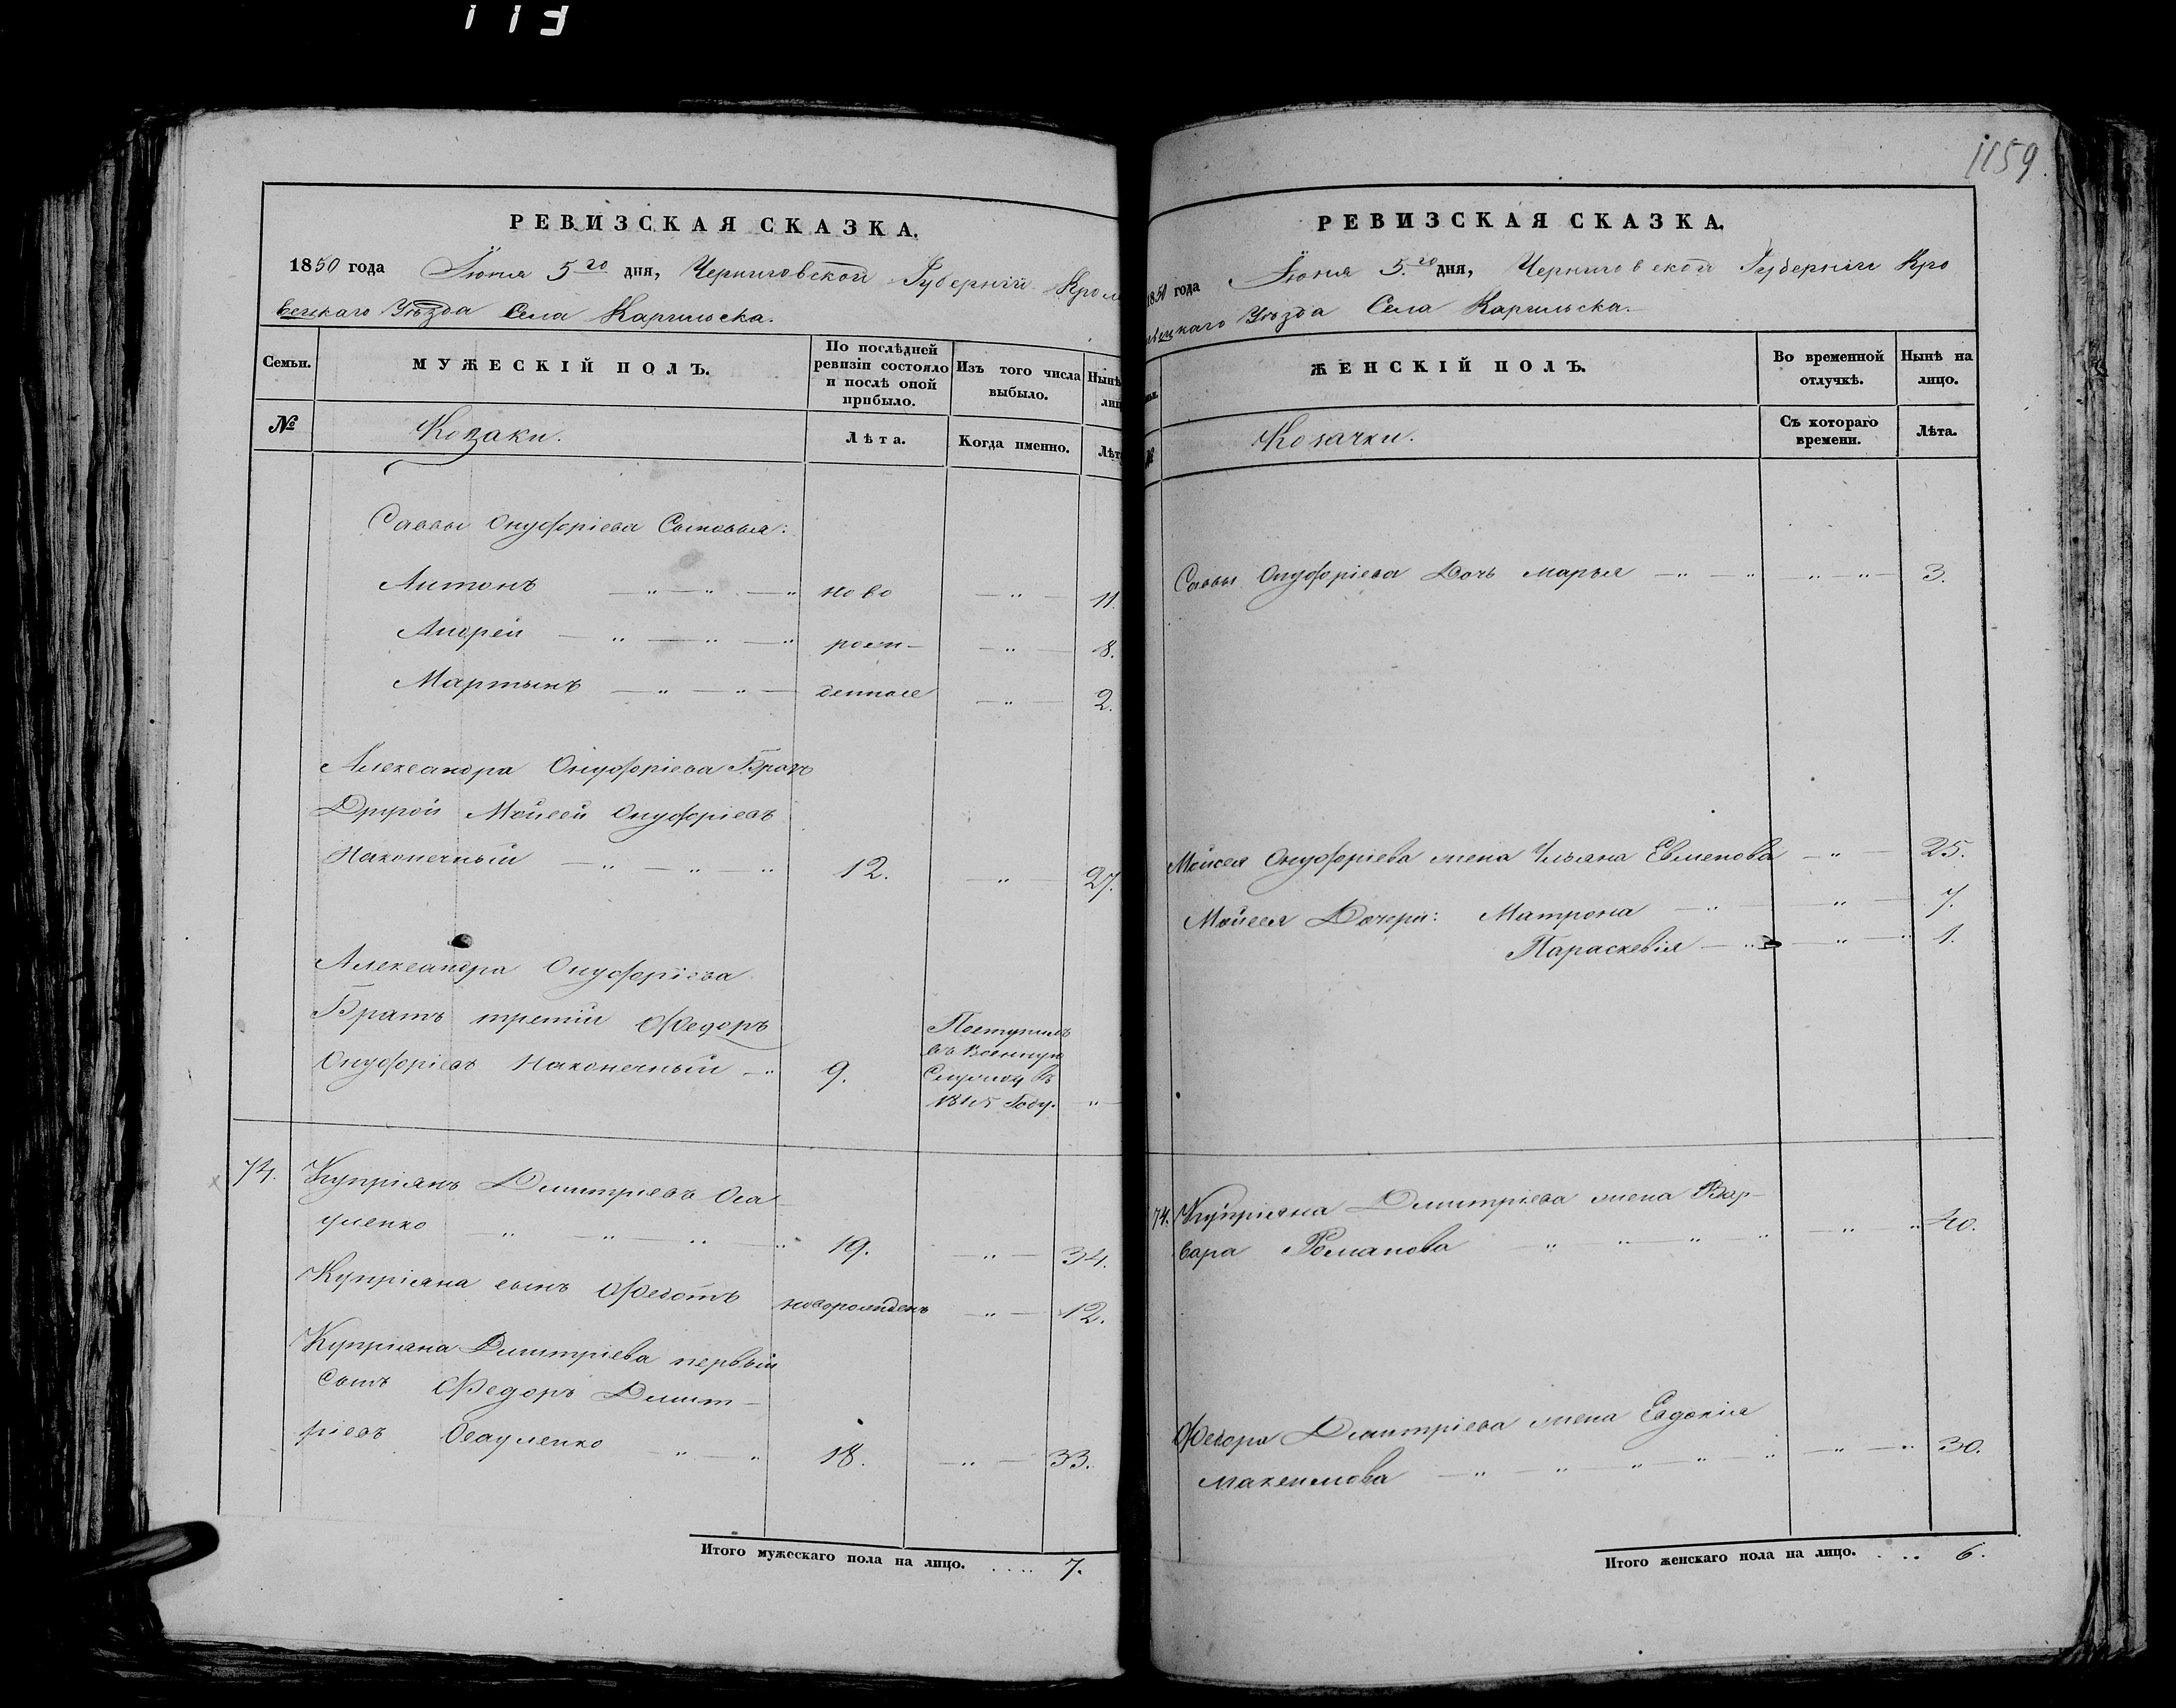 113
РЕВИЗСКАЯ СКАЗКА.
1850 года Іюня 5го дня, Черниговской Губерніи Кроле
вецкаго Уѣзда Села Каргильска.
Семьи.
МУЖЕСКІЙ ПОЛЪ.
По послѣдней ревизіи состояло и послѣ оной прибыло.
Изъ того числа выбыло.
Нынѣ
лиц
№
Козаки.
Лѣта.
Когда именно.
Лѣт
Саввы Онуфріева Сыновья:
Антонъ — " — " — " ново — " — 11.
Андрей — " — " — " рож- — " — 8.
Мартынъ — " — " — денные — " — 2.
Александра Онуфріева Братъ
Другой Мойсей Онуфріевъ
Наконечный — " — " — " 12. — " — 27.
Александра Онуфріева
Братъ третій Федоръ
Онуфріевъ Наконечный — " 9.
Поступилъ
въ Военную
Службу въ
1845 Году. "
74. Купріянъ Дмитріевъ Оса
уленко — " — " — " — " 19. — " — 34.
Купріяна сынъ Федотъ новорожденъ — " — 12.
Купріяна Дмитріева первый
Сынъ Федоръ Дмит-
ріевъ Осауленко — " — " 18. — " — 33.
Итого мужескаго пола на лицо. .... 7.
1159.
РЕВИЗСКАЯ СКАЗКА.
1850 года Іюня 5.го дня, Черниговской Губерніи Кро
левецкаго Уѣзда Села Каргильска.—
ЖЕНСКІЙ ПОЛЪ.
Во временной отлучкѣ.
Нынѣ на лицо.
№
Козачки.
Съ котораго времени.
Лѣта.
Саввы Онуфріева Дочь Марья — " — " — " — " — 3.
Мойсея Онуфріева жена Ульяна Евменова — " — 25.
Мойсея Дочери: Матрона — " — " — 7.
Параскевія — " — " — " 1.
74. Купріяна Дмитріева жена Вар-
вара Романова " " — " — " — " " 40.
Федора Дмитріева жена Евдокія
Максимова — " — " — " — " — " — " — " 30.
Итого женскаго пола на лицо. . .. 6.